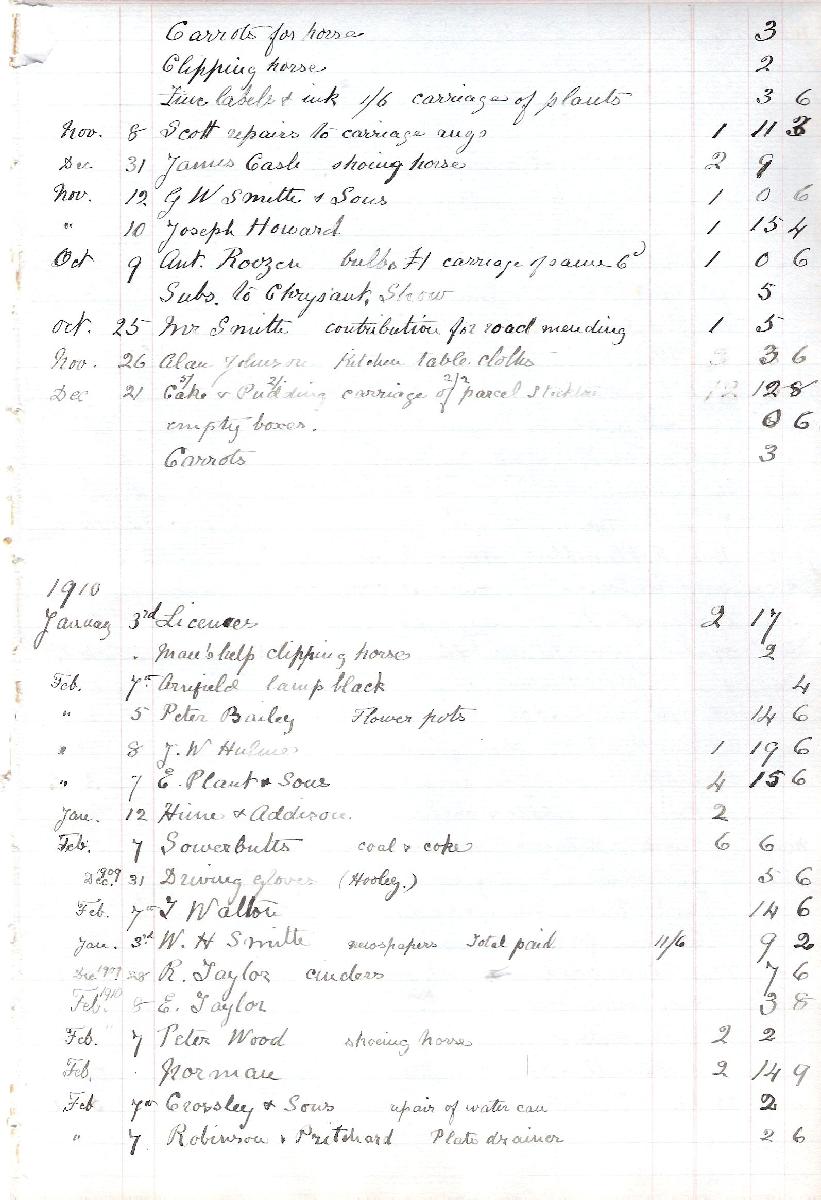 Carrots for horse 3
Clipping horse 2
Zinc labels & ink 1/6 carriage of plants 3 6
Nov. 8 Scott repairs to carriage rugs 1 11 3
Dec. 31 James Cash shoing horse 2 9
Nov. 12 G W Smith & Sons 1 0 6
" 10 Joseph Howard 1 15 4
Oct 9 Ant. Roozen bulbs £1 carriage of same 6d 1 0 6
Subs. to Chrysant. Show 5
Oct. 25 Mr Smith contribution for road mending 1 5
Nov. 26 Alan Johnson Kitchen table cloths 3 6
Dec 21 Cake & Pudding carriage of parcel 12 8
empty boxes. 0 6
Carrots 3
1910
January 3rd Licences 2 17
. Man's help clipping horse 2
Feb. 7th Arrifield lamp black 4
" 5 Peter Bailey Flower pots 14 6
" 8 J. W Hulmes 1 19 6
" 7 E. Plant & Sons 4 15 6
Jan. 12 Hime & Addison. 2
Feb. 7 Sowerbutts coal & coke 6 6
Dec. 1909 31 Driving gloves (Hooley.) 5 6
Feb. 7th J Walton 14 6
Jan. 3rd W. H Smith newspapers Total paid 11/6 9 2
Dec 1909 28 R. Taylor cinders 7 6
Feb. 1910 8 E. Taylor 3 8
Feb. 7 Peter Wood shoeing horse 2 2
Feb. . Norman 2 14 9
Feb 7th Crossley & Sons repair of water can 2
" 7. Robinson & Pritchard Plate drainer 2 6